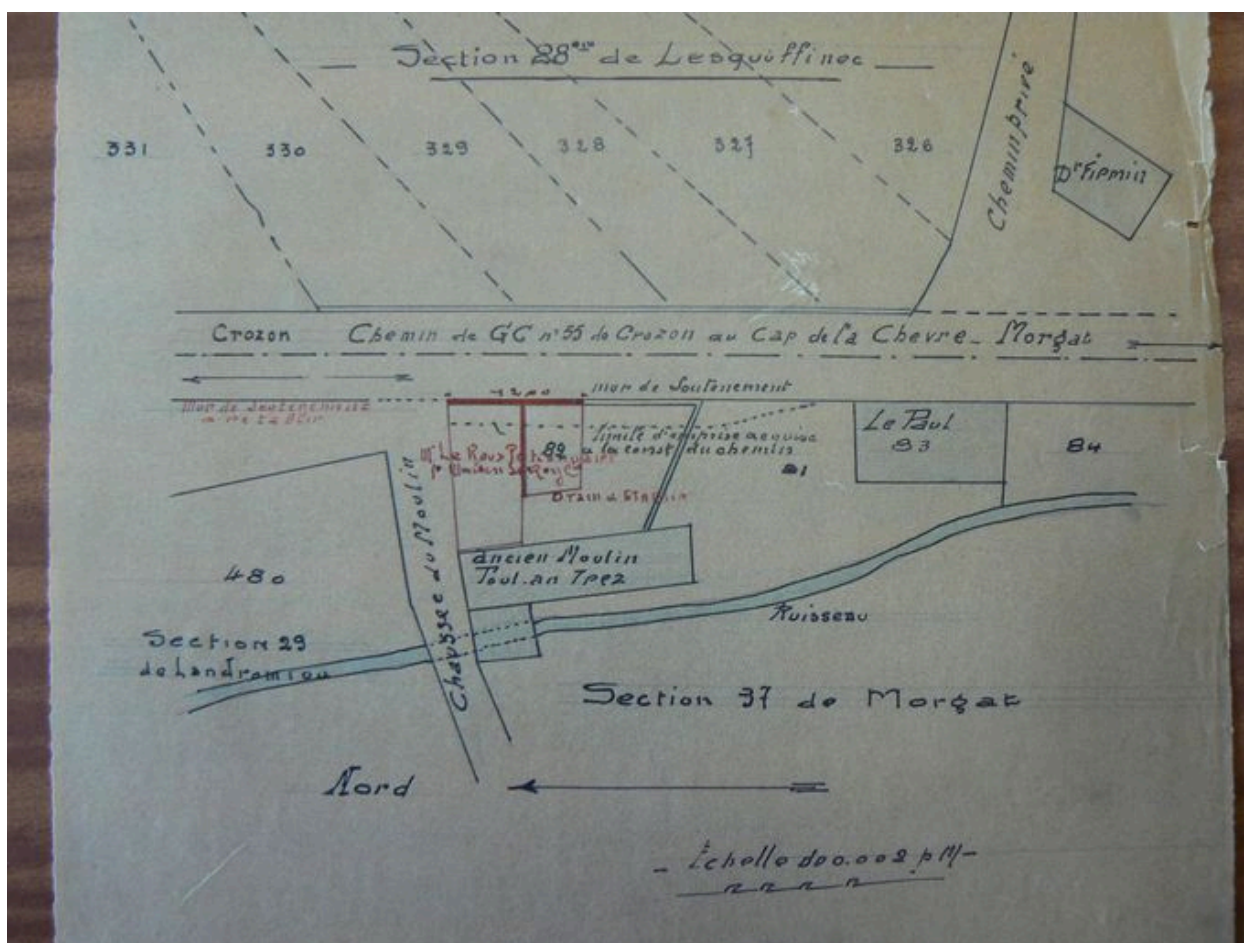 Section 28ème de Lesquiffinec
331
330
329
328
327
326
Chemin privé
Dr Firmin
Crozon
Chemin de GC n°55 de Crozon au Cap de la Chevre - Morgat
12.00
mur de Soutenement
Mur de Soutenement
a rétablir
limite d'emprise acquise
a la const. du chemin
82
Mr Le Roux
Drain a Etablir
81
Le Paul
83
84
Chaussée du Moulin
ancien Moulin
Toul.an Trez
480
Ruisseau
Section 29
de Landromiou
Section 37 de Morgat
Nord
- Echelle de 0.002 p M -